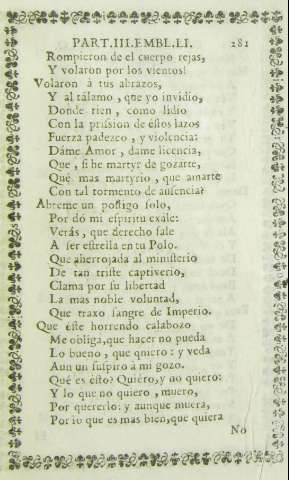 PART.III.EMBE.LI. 281
Rompieron de el cuerpo rejas,
Y volaron por los vientos!
Volaron á tus abrazos,
Y al tálamo, que yo invidio,
Donde rien, como lidio
Con la prision de estos lazos
Fuerza padezco, y violencia:
Dáme Amor, dame licencia,
Que, si he martyr de gozarte,
Qué mas martyrio, que amarte
Con tal tormento de ausencia?
Abreme un postigo solo,
Por dó mi espiritu exale:
Verás, que derecho sale
A ser estrella en tu Polo.
Que aherrojada al ministerio
De tan triste captiverio,
Clama por su libertad
La mas noble voluntad,
Que traxo sangre de Imperio.
Que éste horrendo calabozo
Me obliga, que hacer no pueda
Lo bueno, que quiero: y veda
Aun un suspiro a mi gozo.
Qué es esto? Quiero, y no quiero:
Y lo que no quiero, muero,
Por quererlo: y aunque muera,
Por lo que es mas bien, que quiera
No